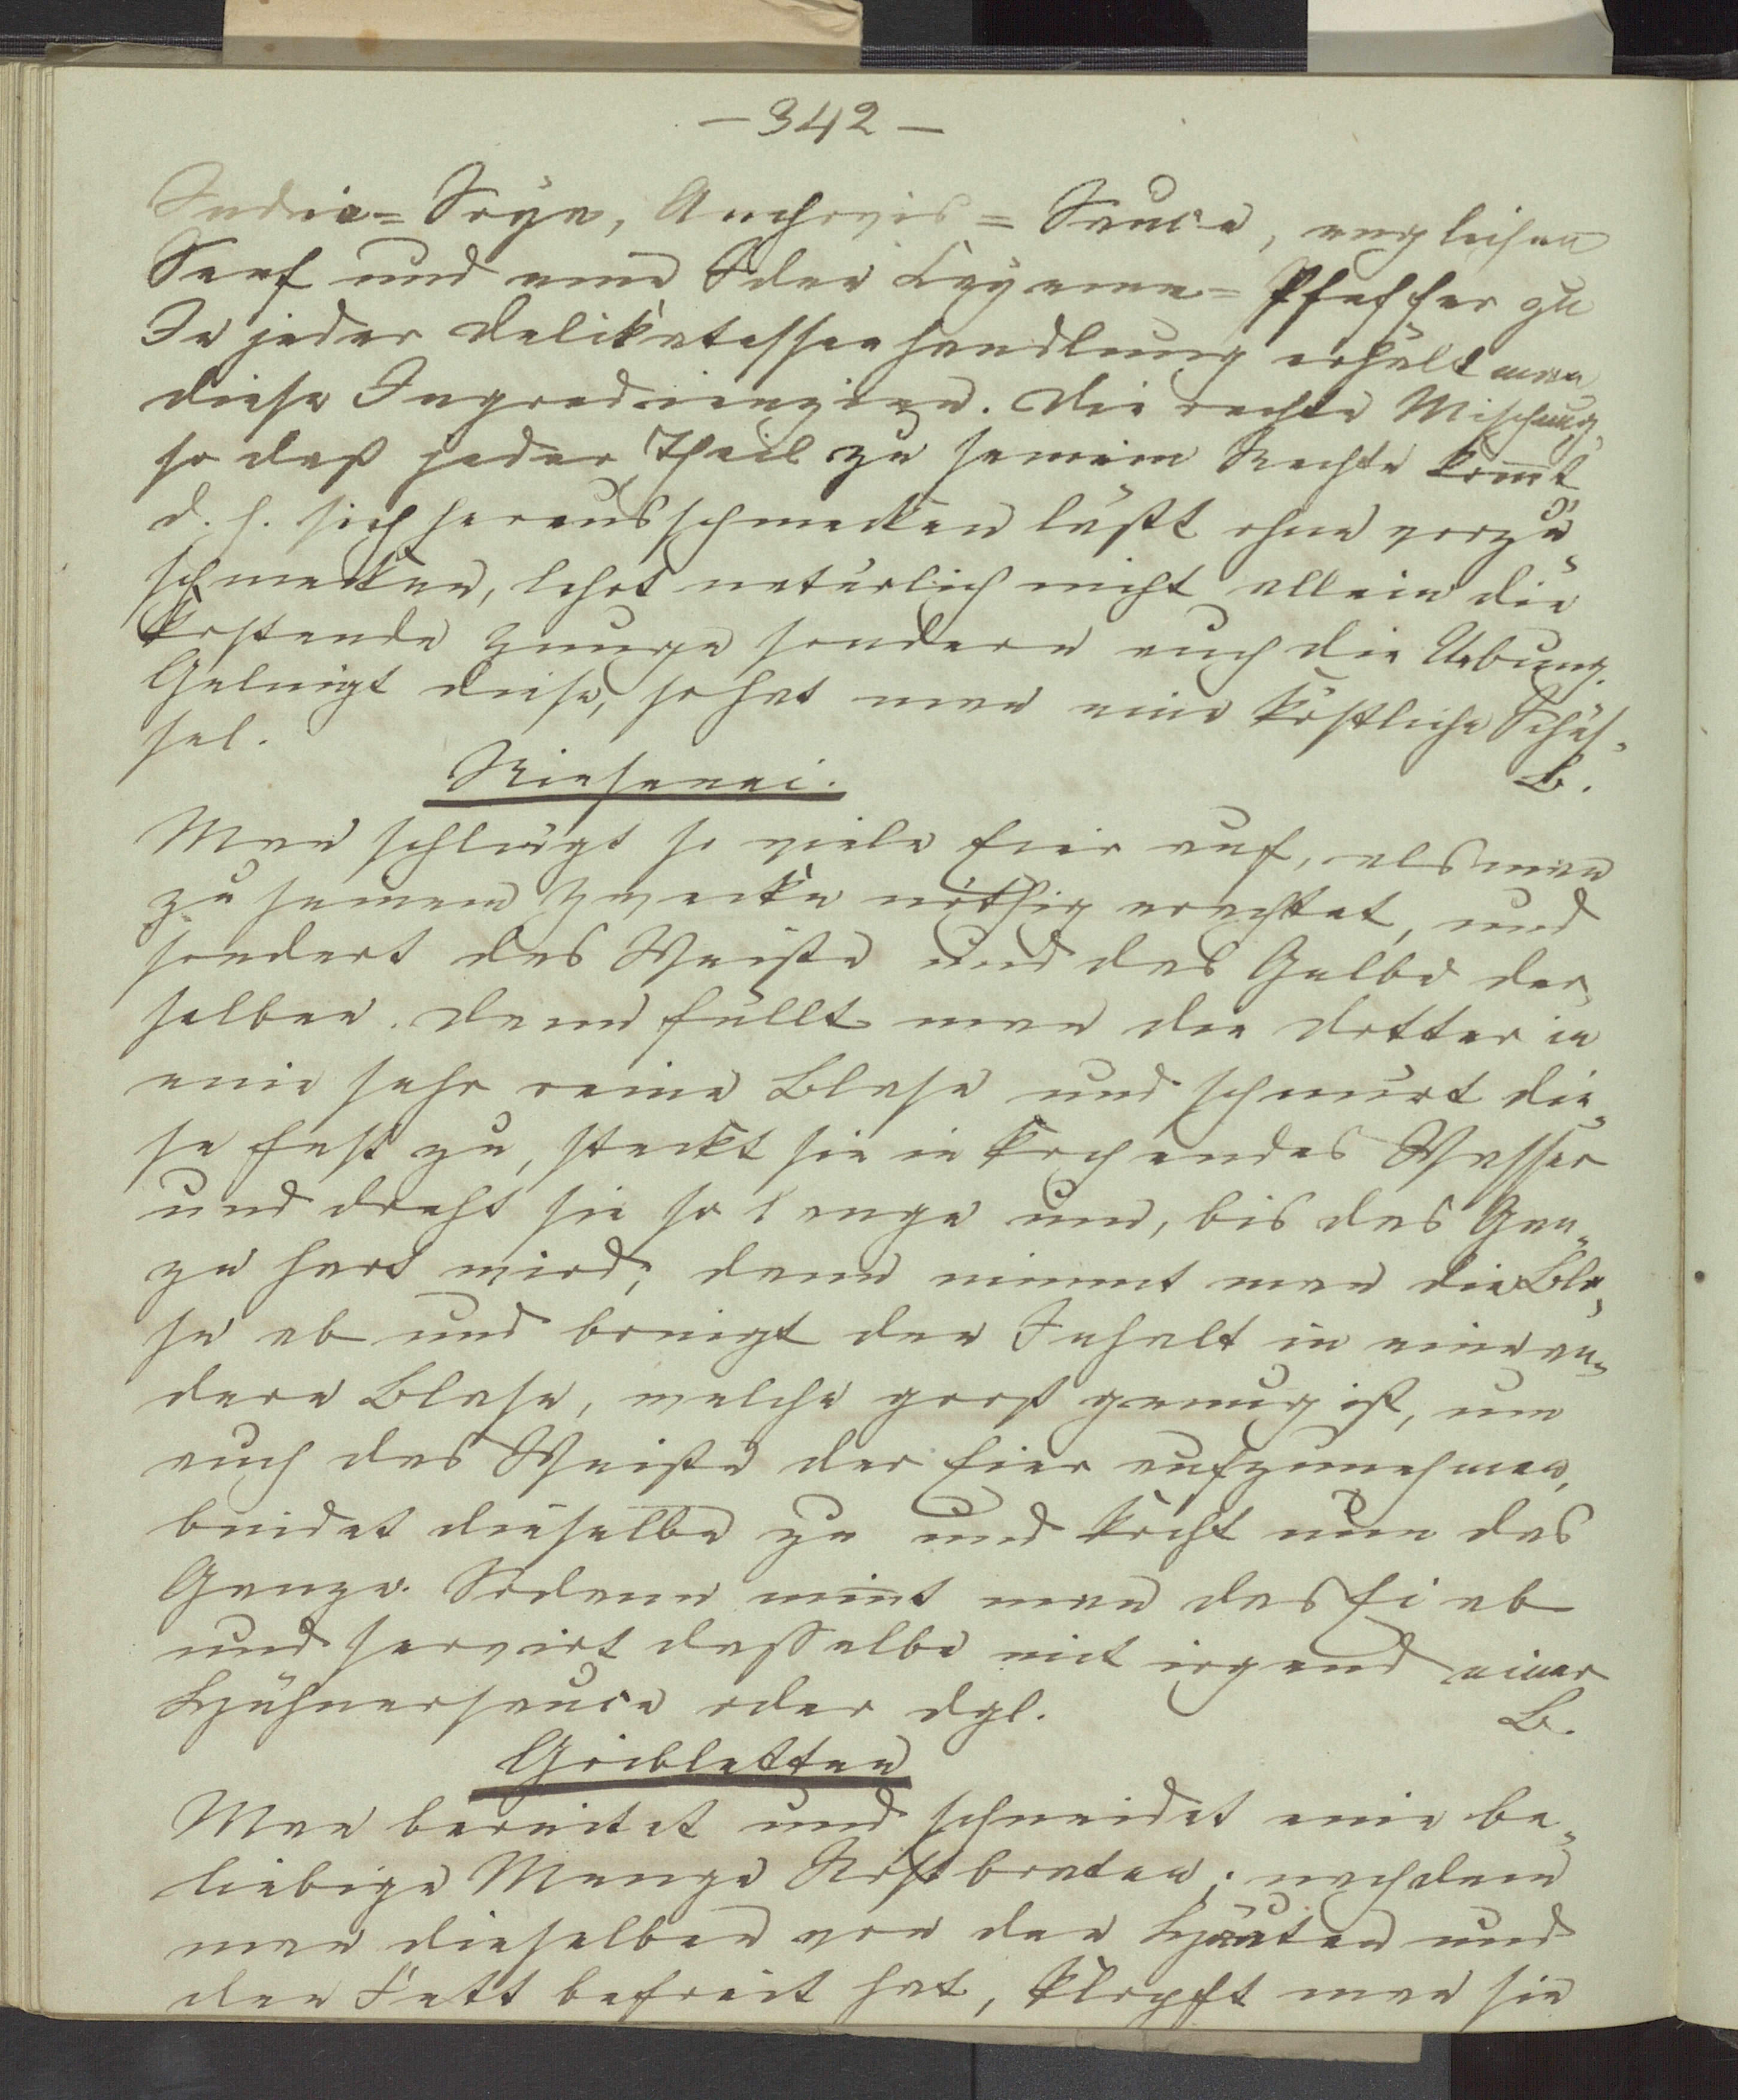 — 342 —
India = Soya, Anchovis = Sauce, englischen
Senf und eine Idee Cayenne = Pfeffer zu
In jeder Delikatessenhandlung erhält man
diese Ingredienzien. Die rechte Mischung,
so daß jeder Theil zu seinem Rechte kommt
d. h. sich herausschmecken läßt ohne vorzu„
schmecken, lehrt natürlich nicht allein die
kostende Zunge sondern auch die Uebung.
Gelingt diese, so hat man eine köstliche Schüs„
sel.
B.
Riesenei.
Man schlägt so viele Eier auf, als man
zu seinem Zwecke nöthig erachtet, und
sondert das Weiße und das Gelbe der„
selben. Dann füllt man die Dotter in
eine sehr reine Blase und schnürt die„
se fest zu, steckt sie in kochendes Wasser
und dreht sie so lange um, bis das Gan„
ze hart wird; dann nimmt man die Bla„
se ab und bringt den Inhalt in eine an„
dere Blase, welche groß genug ist, um
auch das Weiße der Eier aufzunehmen,
bindet dieselbe zu und kocht nun das
Ganze. Sodann nimt man das Ei ab
und servirt dasselbe mit irgend einer
Hühnersauce oder dgl.
B.
Gribletten
Man bereitet und schneidet eine be„
liebige Menge Rostbraten; nachdem
man dieselben von den Häuten und
den Fett befreit hat, klopft man sie